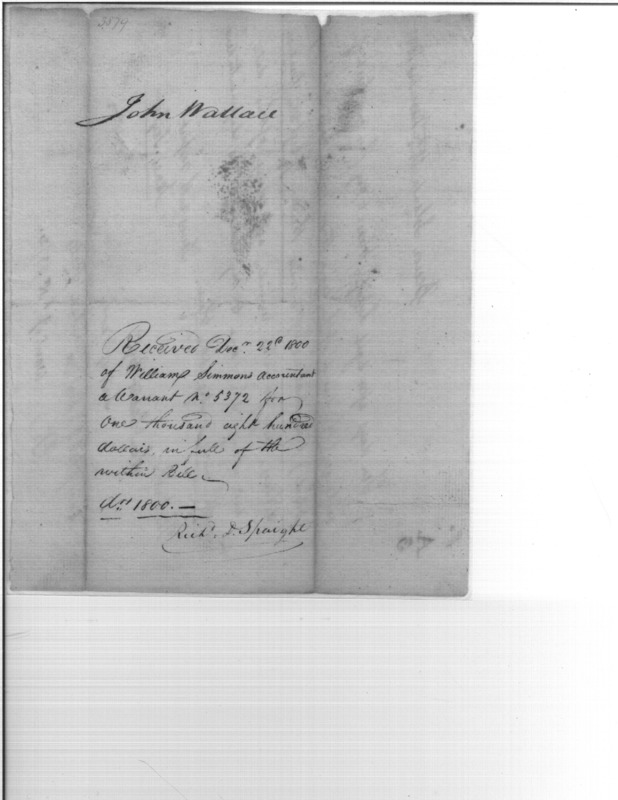 3574
John Wallace
Received Decr. 22d 1800
of William Simmons accountant
a Warrant No 5372 for
One thousand eight hundred
dollars, in full of the
within Bill
1800.—
Richd. D. Spaight